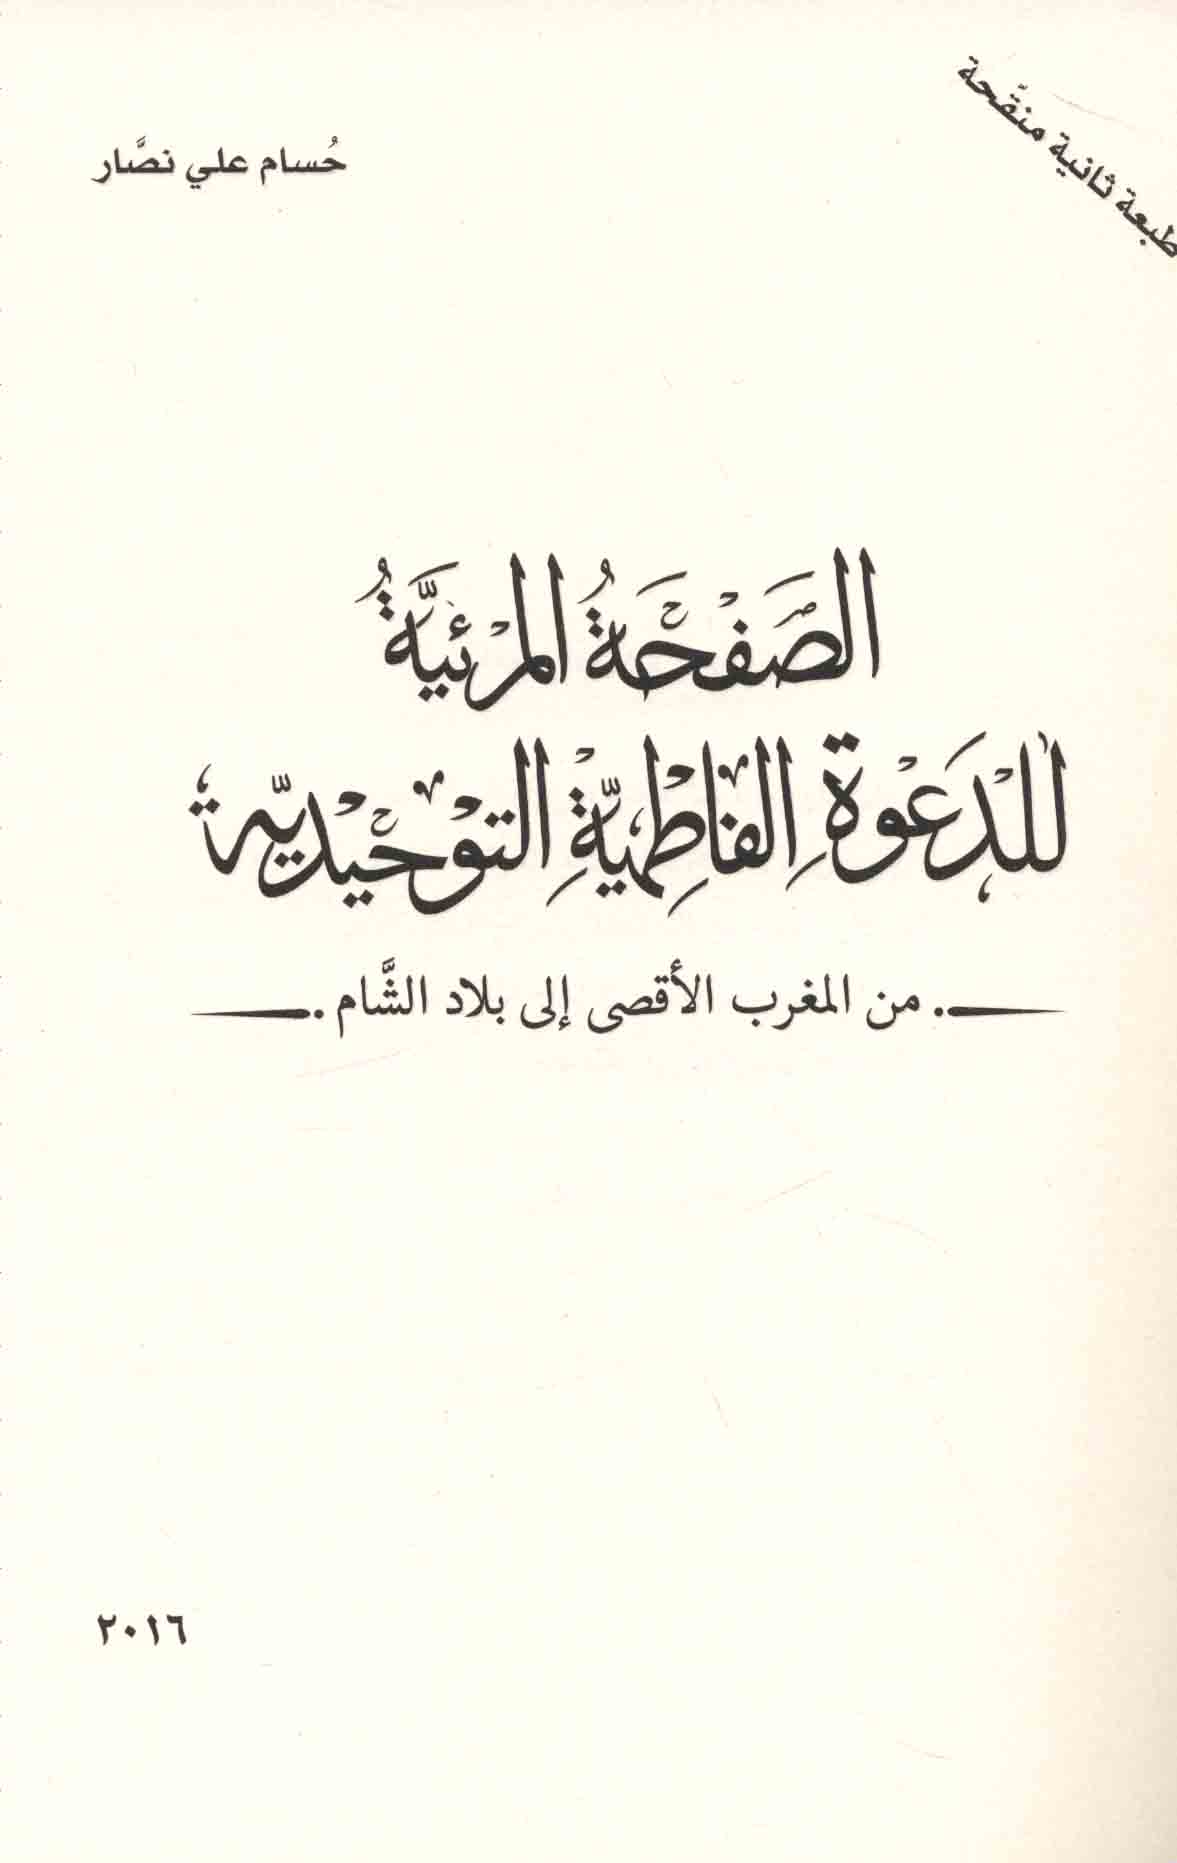 طبعة ثانية منقّحة
حُسام علي نصَّار
الصَفْحَةُ المرْئيَّةُ
للدَعْوةِ الفَاطِميَّةِ التوْحيْديّة
من المغرب الأقصى إلى بلاد الشَّام
٢٠١٦